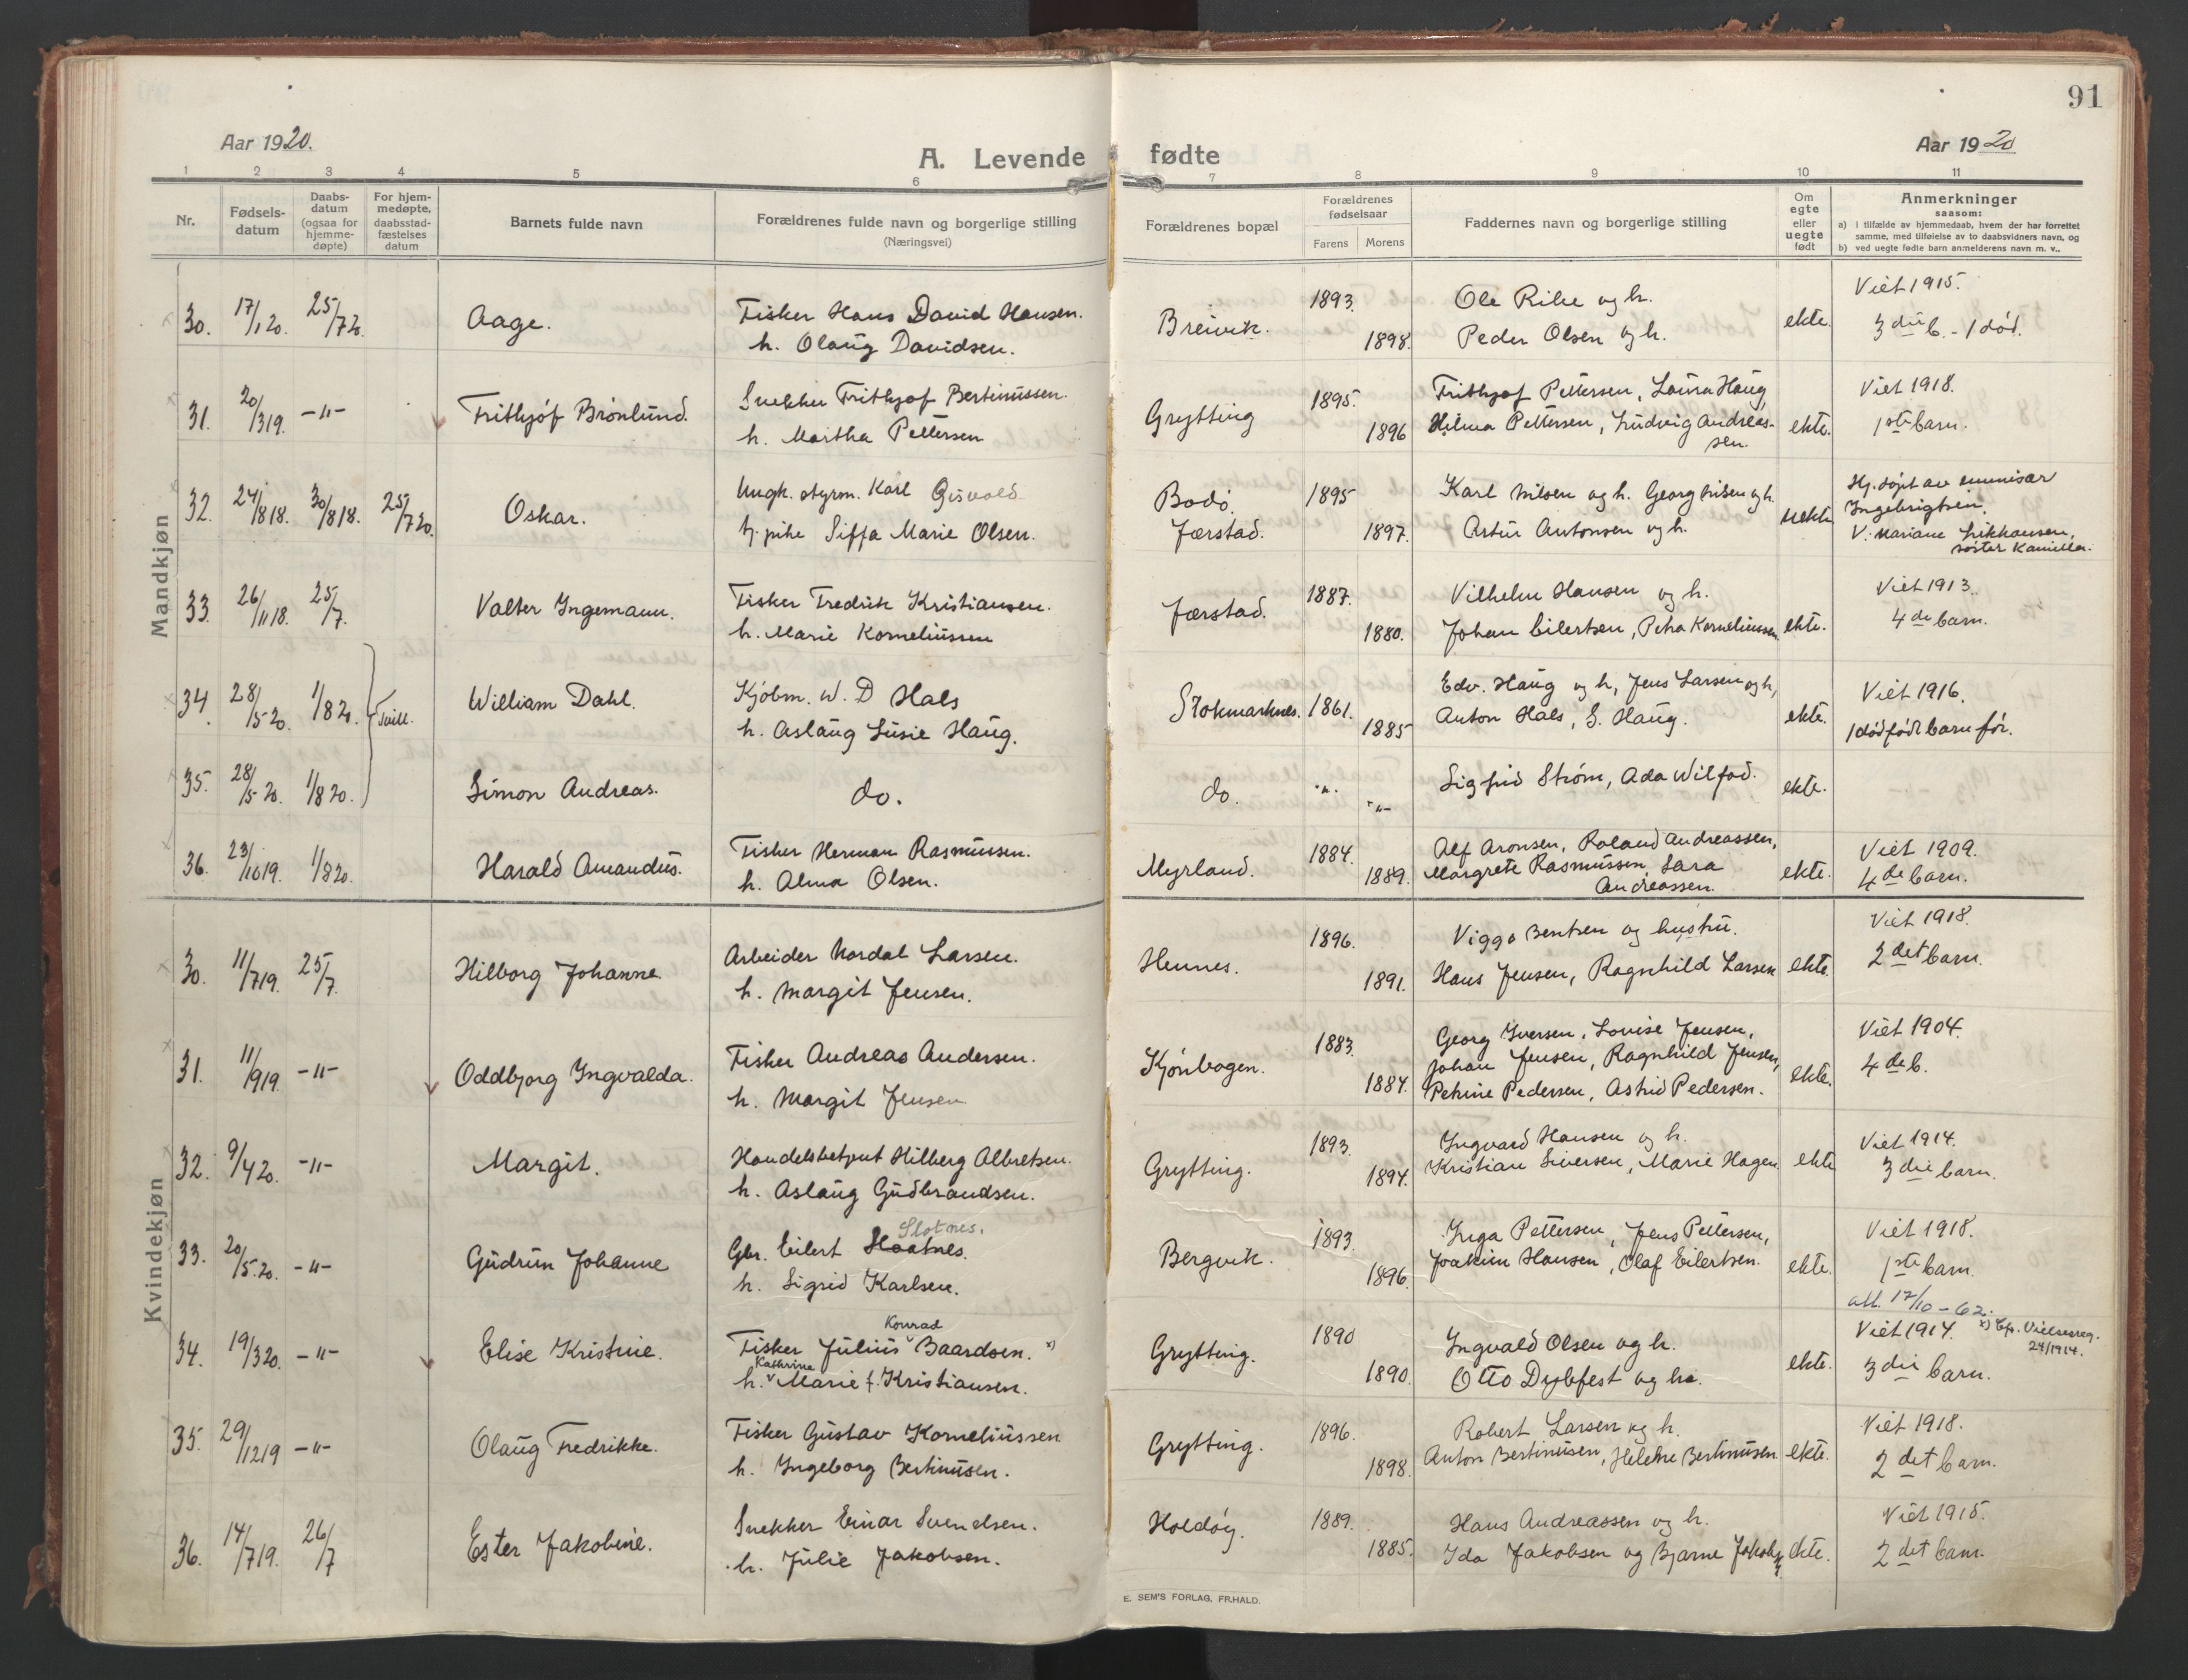 91
Aar 1920.
A. Levende fødte
Aar 1920
1 2 3 4 5 6 7 8 9 10 11
Nr.
Fødsels-
datum
Daabs-
datum
(ogsaa for
hjemme-
døpte)
For hjem-
medøpte,
daabsstad-
fæstelses
datum
Barnets fulde navn
Forældrenes fulde navn og borgerlige stilling
(Næringsvei)
Forældrenes bopæl
Forældrenes
fødselsaar
Farens Morens
Faddernes navn og borgerlige stilling
Om
egte
eller
uegte
født
Anmerkninger
saasom:
a) i tilfælde av hjemmedaab, hvem der har forrettet
samme, med tilføielse av to daabsvidners navn, og
b) ved uegte fødte barn anmelderens navn m. v..
Mandkjøn
30. 17/1 20. 25/7 20. Aage. Fisker Hans David Hansen. Breivik. 1893. Ole Rike og h. ekte. Viet 1915.
h. Olaug Davidsen. 1898. Peder Olsen og h. 3die b. - 1 død.
31. 20/3 19. -"- Frithjof Brønlund. Snekker Frithjof Bertinussen. Grytting 1895. Frithjof Pettersen, Laura Haug, ekte. Viet 1918.
h. Martha Pettersen 1896 Hilma Pettersen, Ludvig Andreas-
sen. 1ste barn.
32. 24/8 18. 30/8 18. 25/7 20. Oskar. Ungk. styrm. Karl Gisvold Bodø. 1895 Karl Nilsen og h. Georg Nilsen og h. uekte Hj. døpt av emmisær
Ingebrigtsen.
tj. pike Siffa Marie Olsen. Jørstad. 1897. Artur Antonsen og h. V. Mariane Erikhausen,
søster Kamilla.
33. 26/11 18. 25/7. Valter Ingemann. Fisker Fredrik Kristiansen. Jørstad. 1887. Vilhelm Hansen og h. ekte. Viet 1913.
h. Marie Korneliussen 1880. Johan Eilertsen, Petra Korneliussen 4de barn.
34. 28/5 20. 1/8 20. Tvill. William Dahl. Kjøbm. W. D Hals Stokmarknes. 1861. Edv. Haug og h, Jens Larsen og h, ekte. Viet 1916.
h. Aslaug Lusie Haug. 1885 Anton Hals, S. Haug. 1 dødfødt barn før.
35. 28/5 20. 1/8 20. Simon Andreas. do. do. -"- -"- Sigfrid Strøm, Ada Wilfod. ekte.
36. 23/10 19. 1/8 20. Harald Amandus. Fisker Herman Rasmussen. Myrland. 1884. Alf Aronsen, Roland Andreassen, ekte. Viet 1909.
h. Alma Olsen. 1889. Margrete Rasmussen, Sara
Andreassen. 4de barn.
Kvindekjøn
30. 11/7 19. 25/7. Hilborg Johanne. Arbeider Nordal Larsen. Hennes. 1896. Viggo Bentsen og hustru. ekte. Viet 1918.
h. Margit Jensen. 1891. Hans Jensen, Ragnhild Larsen 2det barn.
31. 11/9 19. -"- Oddbjorg Ingvalda. Fisker Andreas Andersen. Kjørbogen. 1883. Georg Iversen, Lovise Jensen, ekte. Viet 1904.
Johan Jensen, Ragnhild Jensen,
h. Margit Jensen 1884. Petrine Pedersen, Astrid Pedersen. 4de b.
32. 9/4 20. -"- Margit. Handelsbetjent Hilberg Albretsen. Grytting. 1893. Ingvard Hansen og h. ekte Viet 1914.
h. Aslaug Gudbrandsen. 1894. Kristian Siversen, Marie Hagen. 3die barn.
Slotnes.
33. 20/5 20. -"- Gudrun Johanne Gbr. Eilert Slaatnes. Bergvik. 1893. Inga Pettersen, Jens Pettersen, ekte. Viet 1918.
h. Sigrid Karlsen. 1896. Joakim Hansen, Olaf Eilertsen. 1ste barn.
att. 17/10 - 62.
Konrad
34. 19/3 20. -"- Elise Kristine. Fisker Julius Baardsen. x) Grytting. 1890 Ingvald Olsen og h. ekte. Viet 1914. x) Cfr. Vielsesreg.
24/1914.
Kathrine
h. Marie f. Kristiansen. 1890. Otto Dybfest og h. 3die barn.
35. 29/12 19 -"- Olaug Fredrikke. Fisker Gustav Korneliussen Grytting. 1896. Robert Larsen og h. ekte. Viet 1918.
h. Ingeborg Bertinusen. 1898. Anton Bertinusen, Helene Bertinusen 2det barn.
36. 14/7 19. 26/7 Ester Jakobine. Snekker Einar Svendsen. Holdøy. 1889. Hans Andreassen og h. ekte. Viet 1915.
h. Julie Jakobsen. 1885. Ida Jakobsen og Bjarne Jakobs. 2det barn.
E. SEM'S FORLAG, FR.HALD.